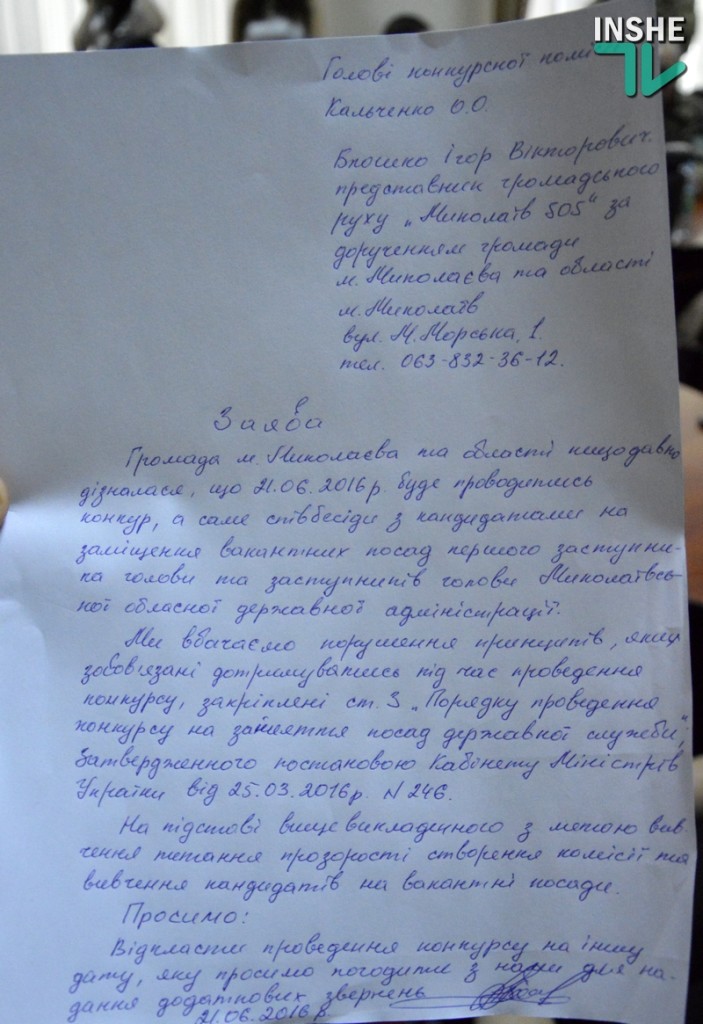 INSHE
TV
Голові конкурсної комі
Кальченко О.О.
Ігор Вікторович.
представник громадського
руху „Миколаїв SOS“ за
дорученням громади
м. Миколаєва та області
м. Миколаїв
вул. М. Морська, 1.
тел. 063-832-36-12.
Заява
Громада м. Миколаєва та області нищодавно
дізналася, що 21.06.2016 р. буде проводитись
конкур, а саме співбесіди з кандидатами на
заміщення вакантних посад першого заступни-
ка голови та заступників голови Миколаївсь-
кої обласної державної адміністрації.
Ми вбачаємо порушення принципів, яких
зобов'язані дотримуватись під час проведення
конкурсу, закріплені ст. 3 „Порядку проведення
конкурсу на заняття посад державної служби“,
затвердженного постановою Кабінету Міністрів
України від 25.03.2016р. N 246.
На підстові вищевикладенного з метою вив-
чення питання прозорості створення комісії та
вивчення кандидатів на вакантні посади.
Просимо:
Відкласти проведення конкурсу на іншу
дату, яку просимо погодити з нами для на-
дання додаткових звернень
21.06.2016 р.